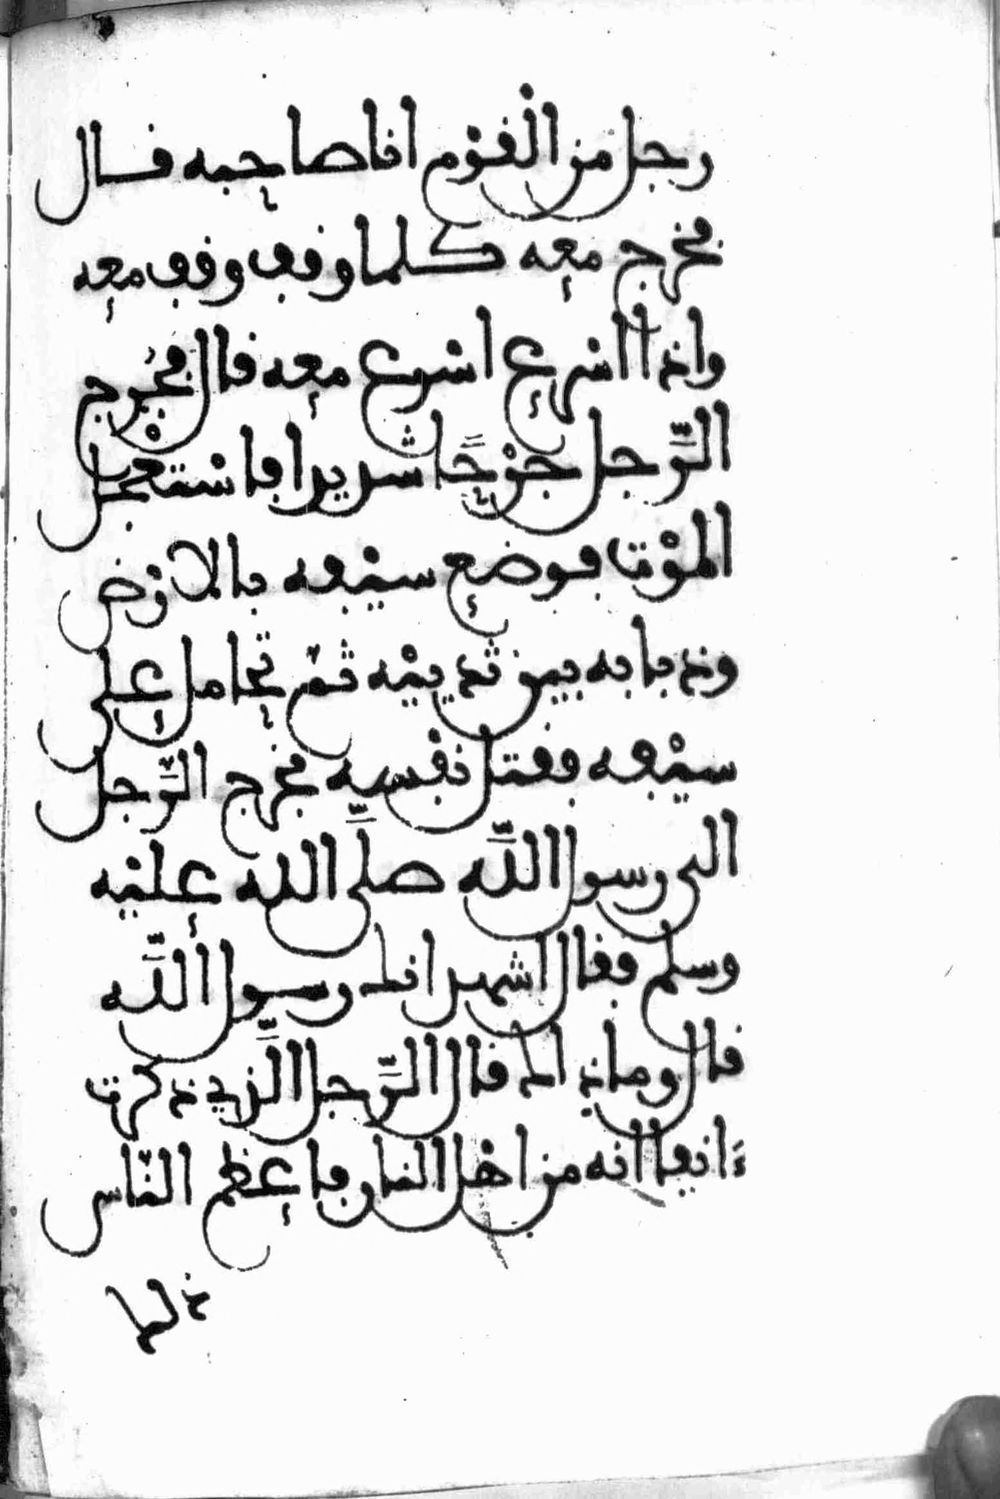 رجل من الْقوْم انا صاحبه قال
فخرج معه كلما وقف وقف معه
واذا اسْرع اسْرع معه قال فجُرح
الرّجل جرْحًا شديدا فاسْتعْجل
الموْت فوضع سيْفه بالارْض
وذبابه بين ثدييْه ثمّ تحامل على
سيْفه فقتل نفْسه فخرج الرّجل
الى رسول اللّه صلّى الله عليْه
وسلم فقال اشهد انك رسول اللّه
قال وما ذالك قال الرّجل الّذي ذكرت
ءانفا انه من اهْل النار فاعظم النّاس
ذالك